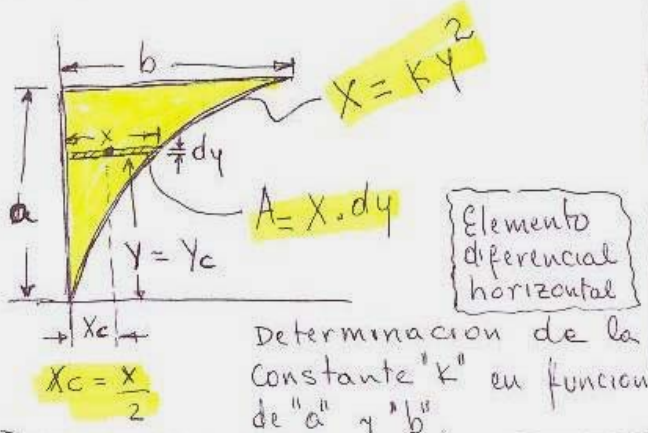 b
X = KY²
x
dy
a
A = X . dy
Y = Yc
Elemento
diferencial
horizontal
Xc
Xc = x/2
Determinacion de la
Constante "K" en funcion
de "a" y "b"